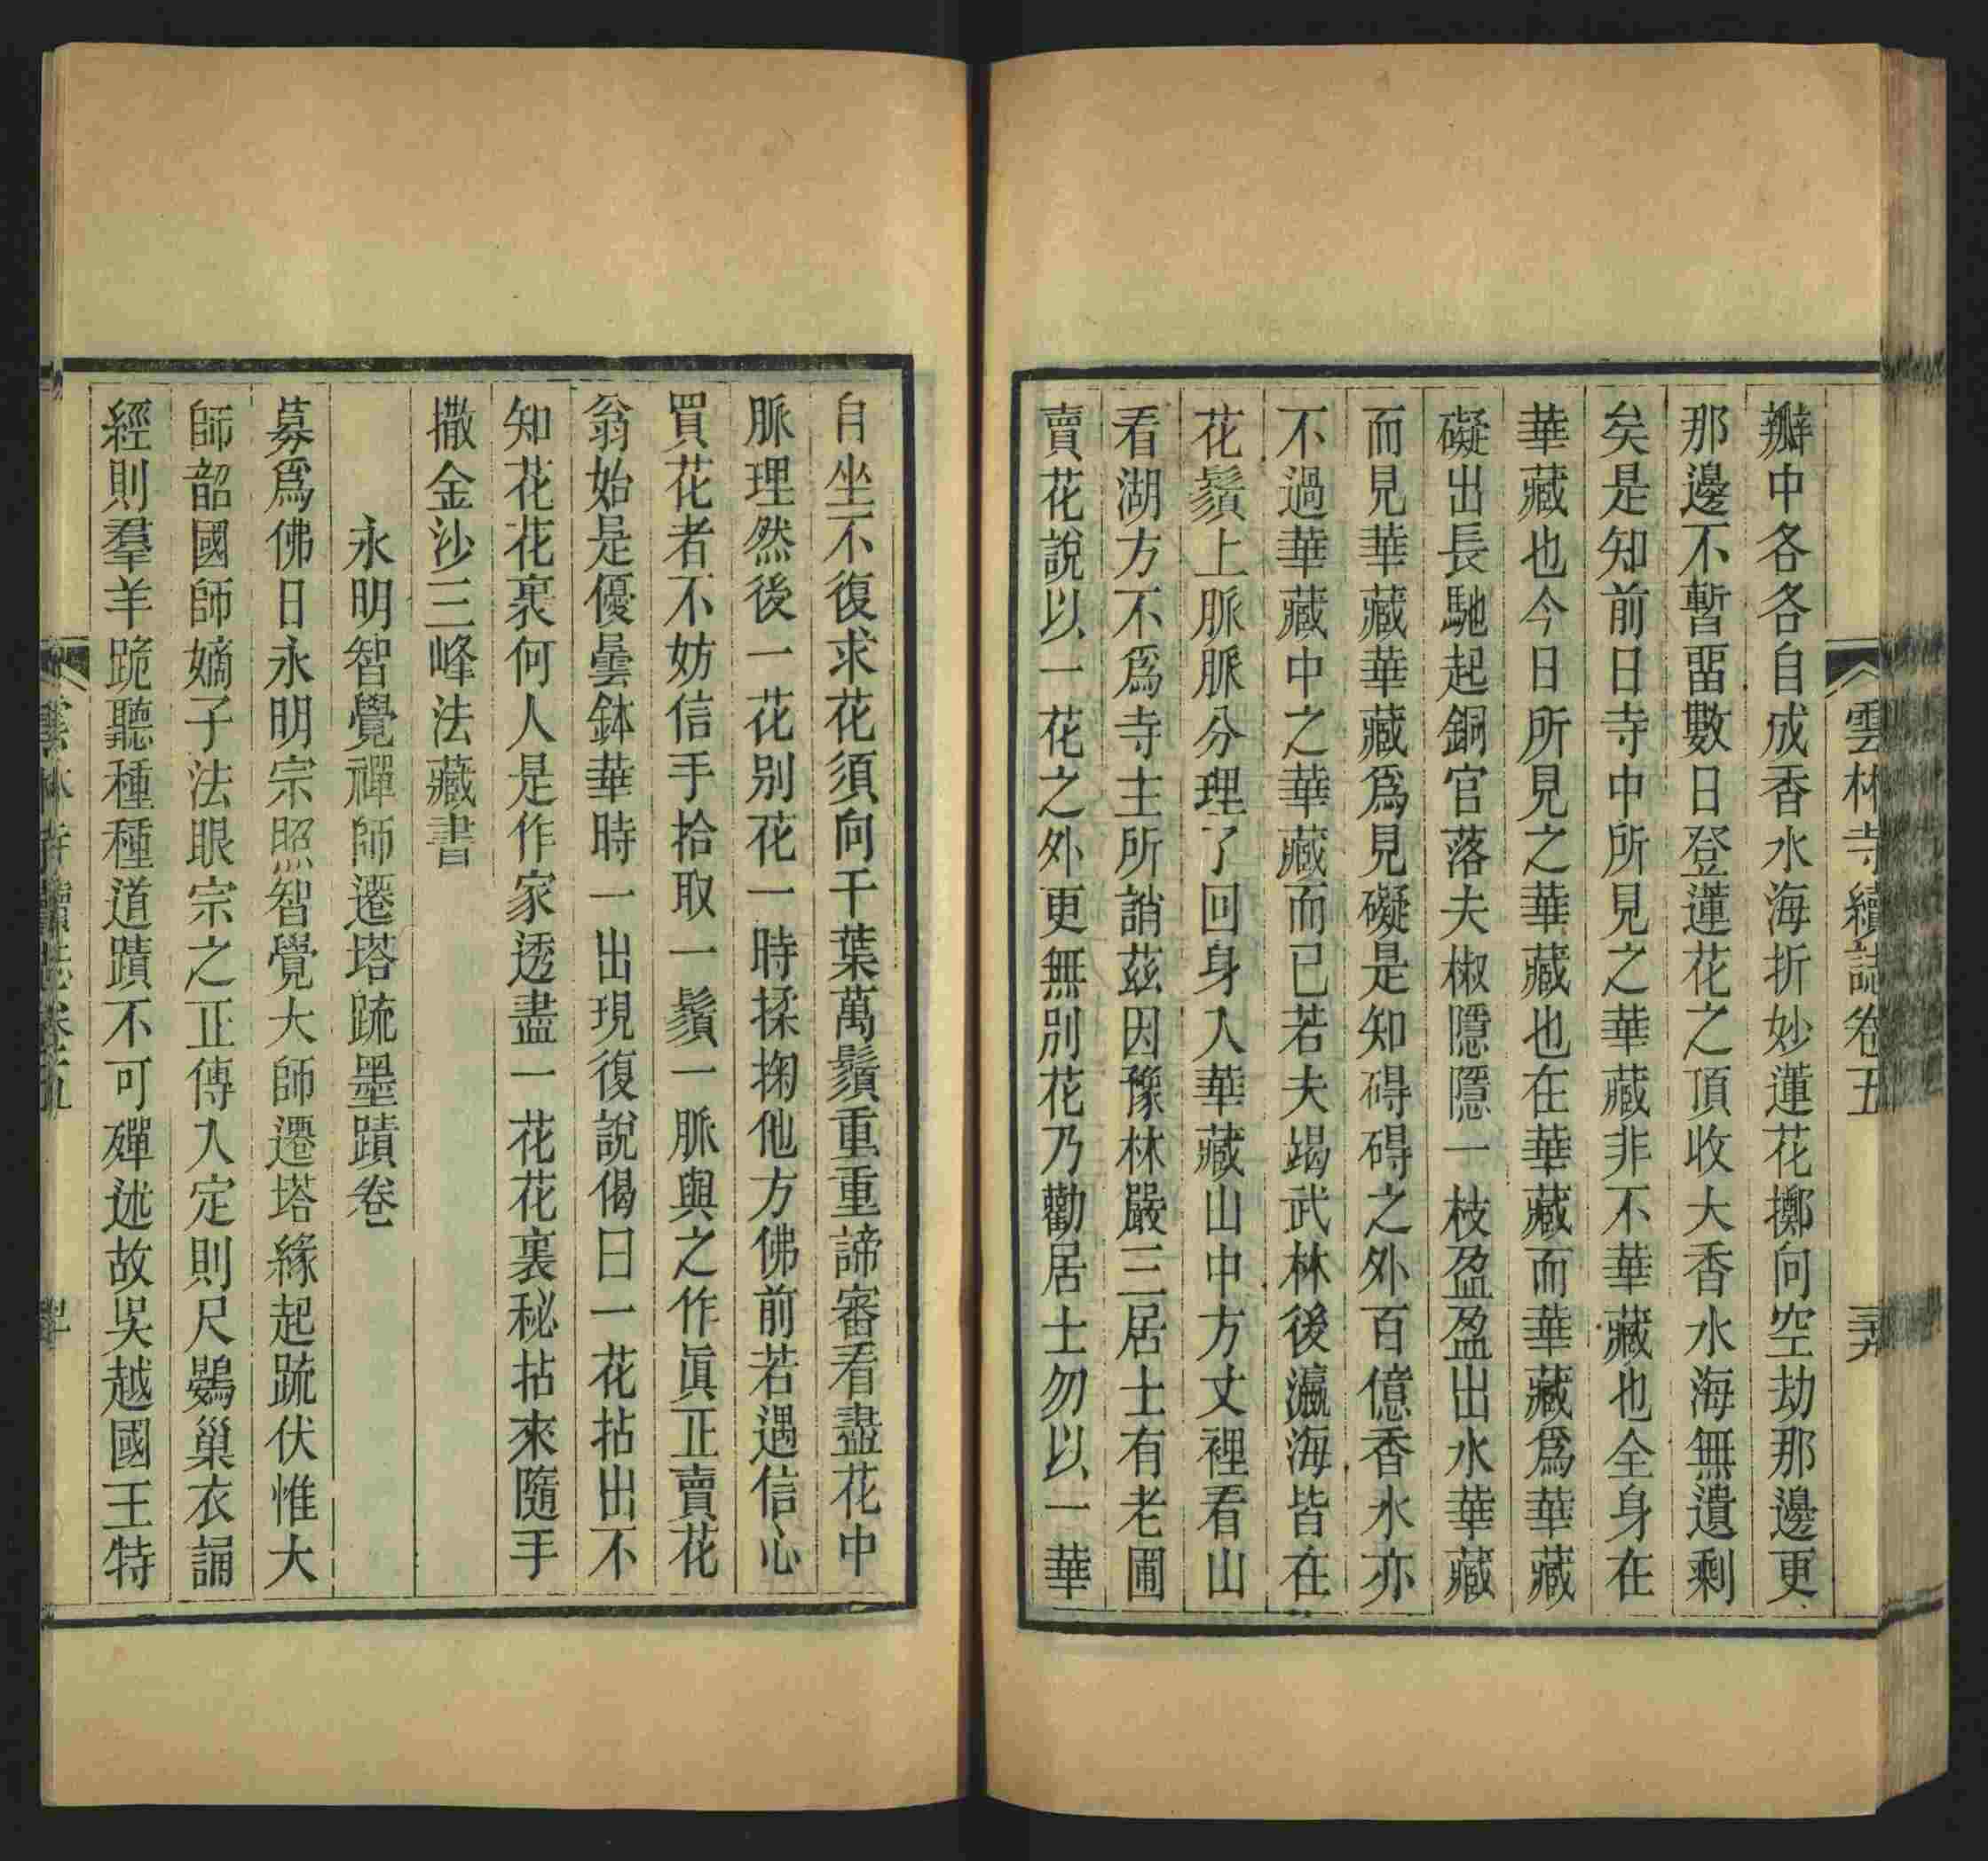 雲林寺續誌卷五
瓣中各各自成香水海折妙蓮花擲向空劫那邊更
那邊不暫畱數日登蓮花之頂收大香水海無遺剩
矣是知前日寺中所見之華藏非不華藏也全身在
華藏也今日所見之華藏也在華藏而華藏爲華藏
礙出長馳起銅官落夫椒隱隱一枝盈盈出水華藏
而見華藏華藏爲見礙是知碍碍之外百億香水亦
不過華藏中之華藏而已若夫竭武林後瀛海皆在
花鬚上脈脈分理了回身入華藏山中方丈裡看山
看湖方不爲寺主所誚茲因豫林嚴三居士有老圃
賣花說以一花之外更無別花乃勸居士勿以一華
自坐不復求花須向千葉萬鬚重重諦審看盡花中
脈理然後一花别花一時揉掬他方佛前若遇信心
買花者不妨信手拾取一鬚一脈與之作眞正賣花
翁始是優曇鉢華時一出現復說偈曰一花拈出不
知花花裏何人是作家透盡一花花裏秘拈來隨手
撒金沙三峰法藏書
永明智覺禪師遷塔疏墨蹟卷
募爲佛日永明宗照智覺大師遷塔緣起疏伏惟大
師韶國師嫡子法眼宗之正傳入定則尺鷃巢衣誦
經則羣羊跪聽種種道蹟不可殫述故吳越國王特